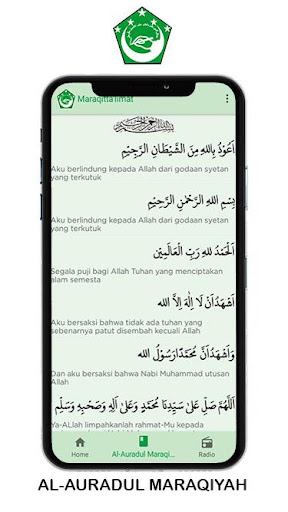 Maraqitta'limat
بِسْمِ اللهِ الرَّحْمٰنِ الرَّحِيْمِ
اَعُوْذُ بِاللهِ مِنَ الشَّيْطَانِ الرَّجِيْمِ
Aku berlindung kepada Allah dari godaan syetan
yang terkutuk
بِسْمِ اللهِ الرَّحْمٰنِ الرَّحِيْمِ
Aku berlindung kepada Allah dari godaan syetan
yang terkutuk
اَلْحَمْدُ للهِ رَبِّ الْعَالَمِيْنَ
Segala puji bagi Allah Tuhan yang menciptakan
alam semesta
اَشْهَدُ اَنْ لَا اِلٰهَ اِلاَّ الله
Aku bersaksi bahwa tidak ada tuhan yang
sebenarnya patut disembah kecuali Allah
وَاَشْهَدُ اَنَّ مُحَمَّدًا رَسُوْلُ الله
Dan aku bersaksi bahwa Nabi Muhammad utusan
Allah
اَللّٰهُمَّ صَلِّ عَلَى سَيِّدِنَا مُحَمَّدٍ وَعَلَى اَلِهِ وَصَحْبِهِ وَسَلِّمْ
Ya-ALLah limpahkanlah rahmat-Mu kepada
Home
Al-Auradul Maraqi...
Radio
AL-AURADUL MARAQIYAH